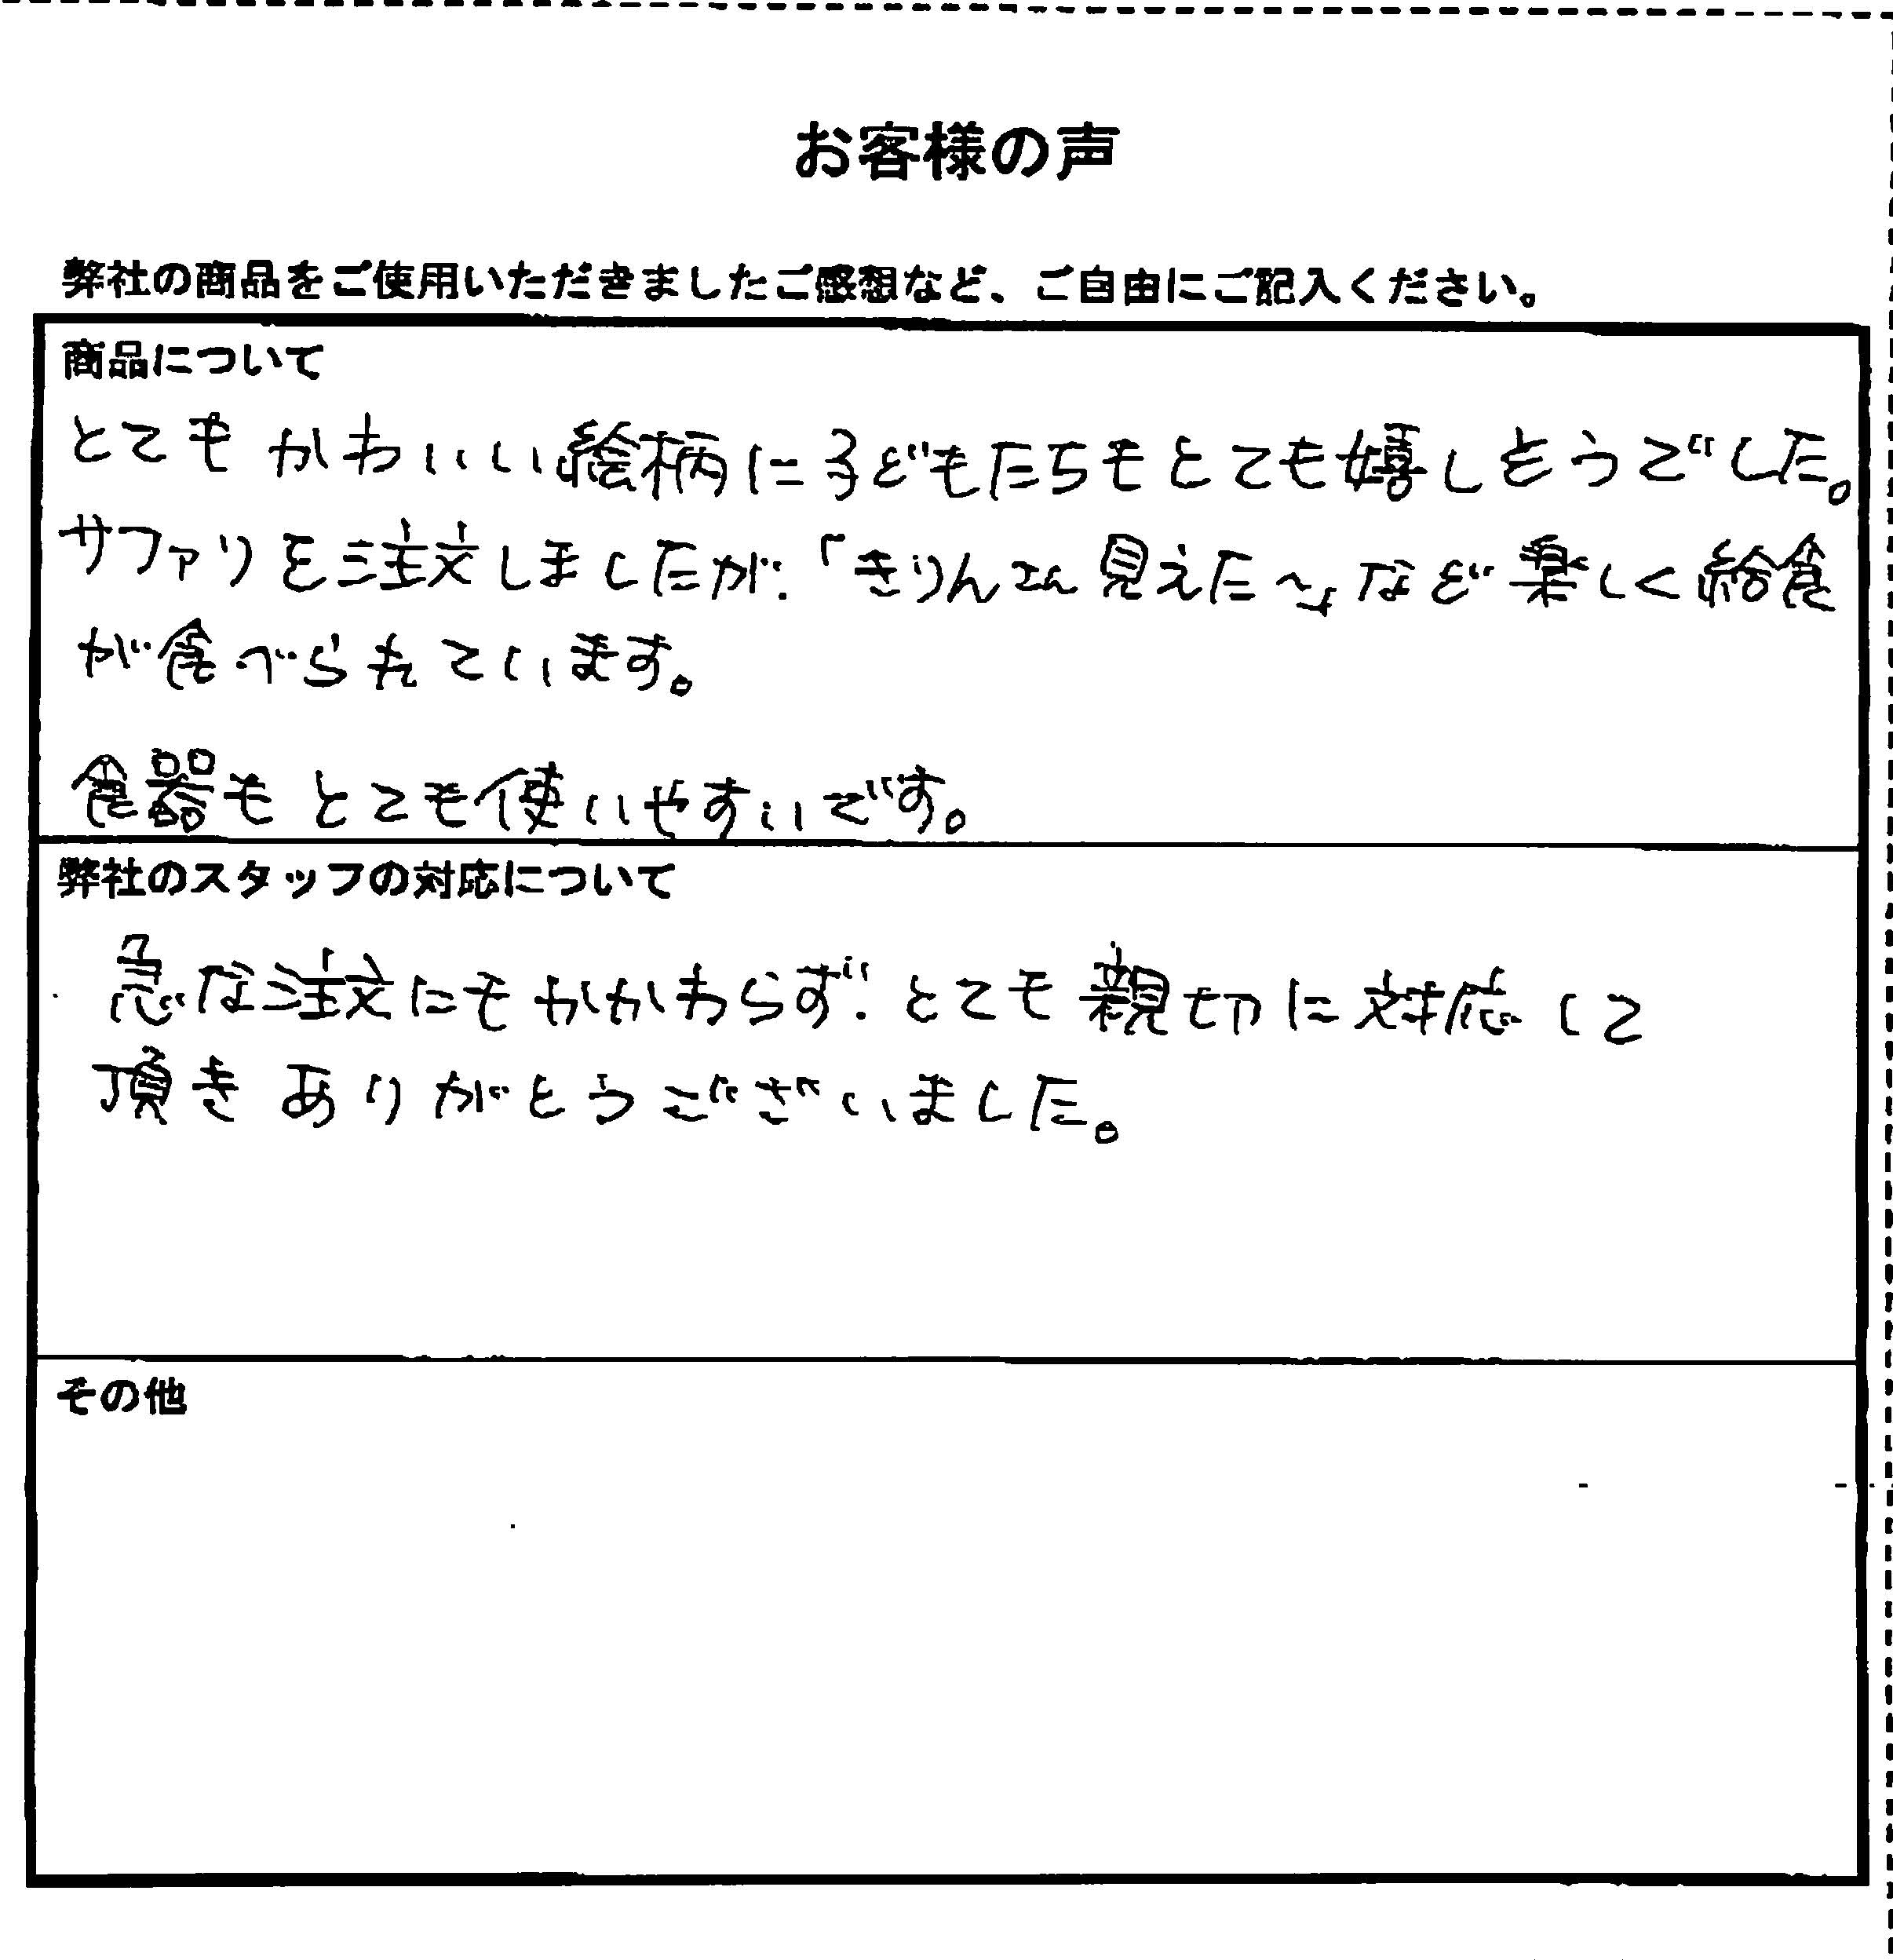 お客様の声
弊社の商品をご使用いただきましたご感想など、ご自由にご記入ください。
商品について
とてもかわいい絵柄に子どもたちもとても嬉しそうでした。
サファリを注文しましたが、「きりんさん見えた〜」など楽しく給食
が食べられています。
食器もとても使いやすいです。
弊社のスタッフの対応について
急な注文にもかかわらず、とても親切に対応して
頂きありがとうございました。
その他